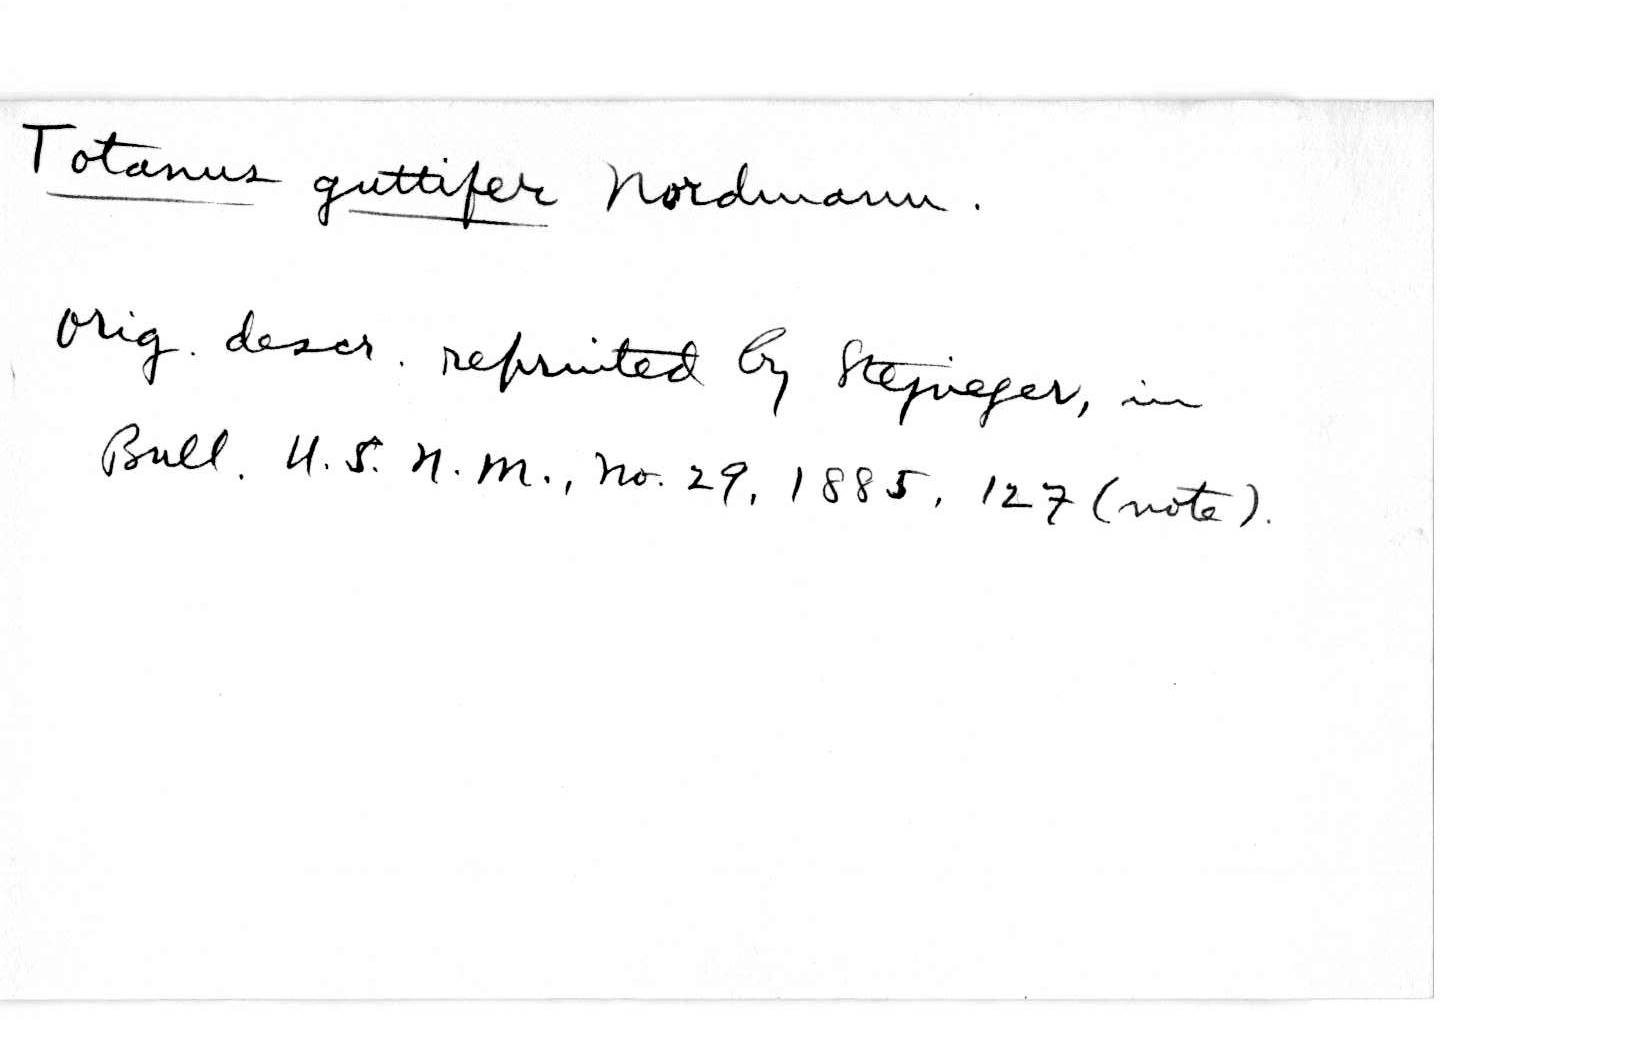 Totanus guttifer Nordmann.
Orig. descr. reprinted by Stejneger, in
Bull. U.S.N.M., no. 29, 1885, 127 (note).